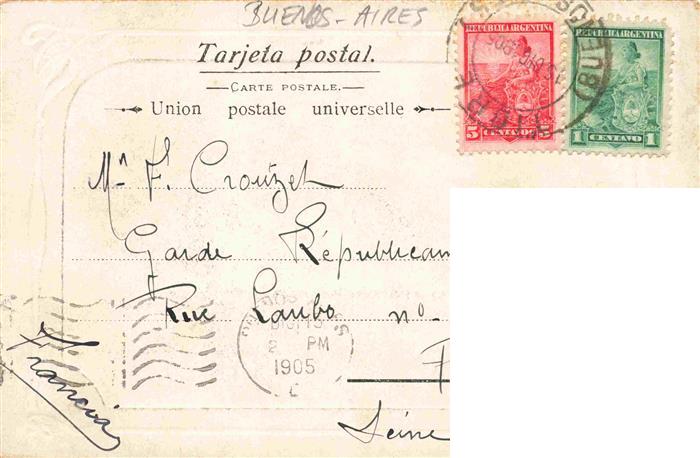 BUENOS-AIRES
Tarjeta postal.
CARTE POSTALE.
Union postale universelle
REPUBLICA ARGENTINA
5 CENTAVOS 5
REPUBLICA ARGENTINA
1 CENTAVO 1
Mr F. Crouzet
Garde Républicain
Rue Lauba no
PM
1905
Francia
Seine